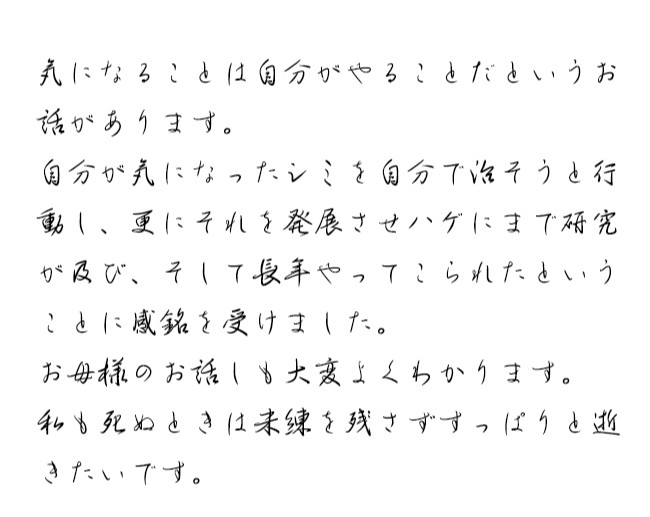 気になることは自分がやることだというお
話があります。
自分が気になったシミを自分で治そうと行
動し、更にそれを発展させハゲにまで研究
が及び、そして長年やってこられたという
ことに感銘を受けました。
お母様のお話しも大変よくわかります。
私も死ぬときは未練を残さずすっぱりと逝
きたいです。